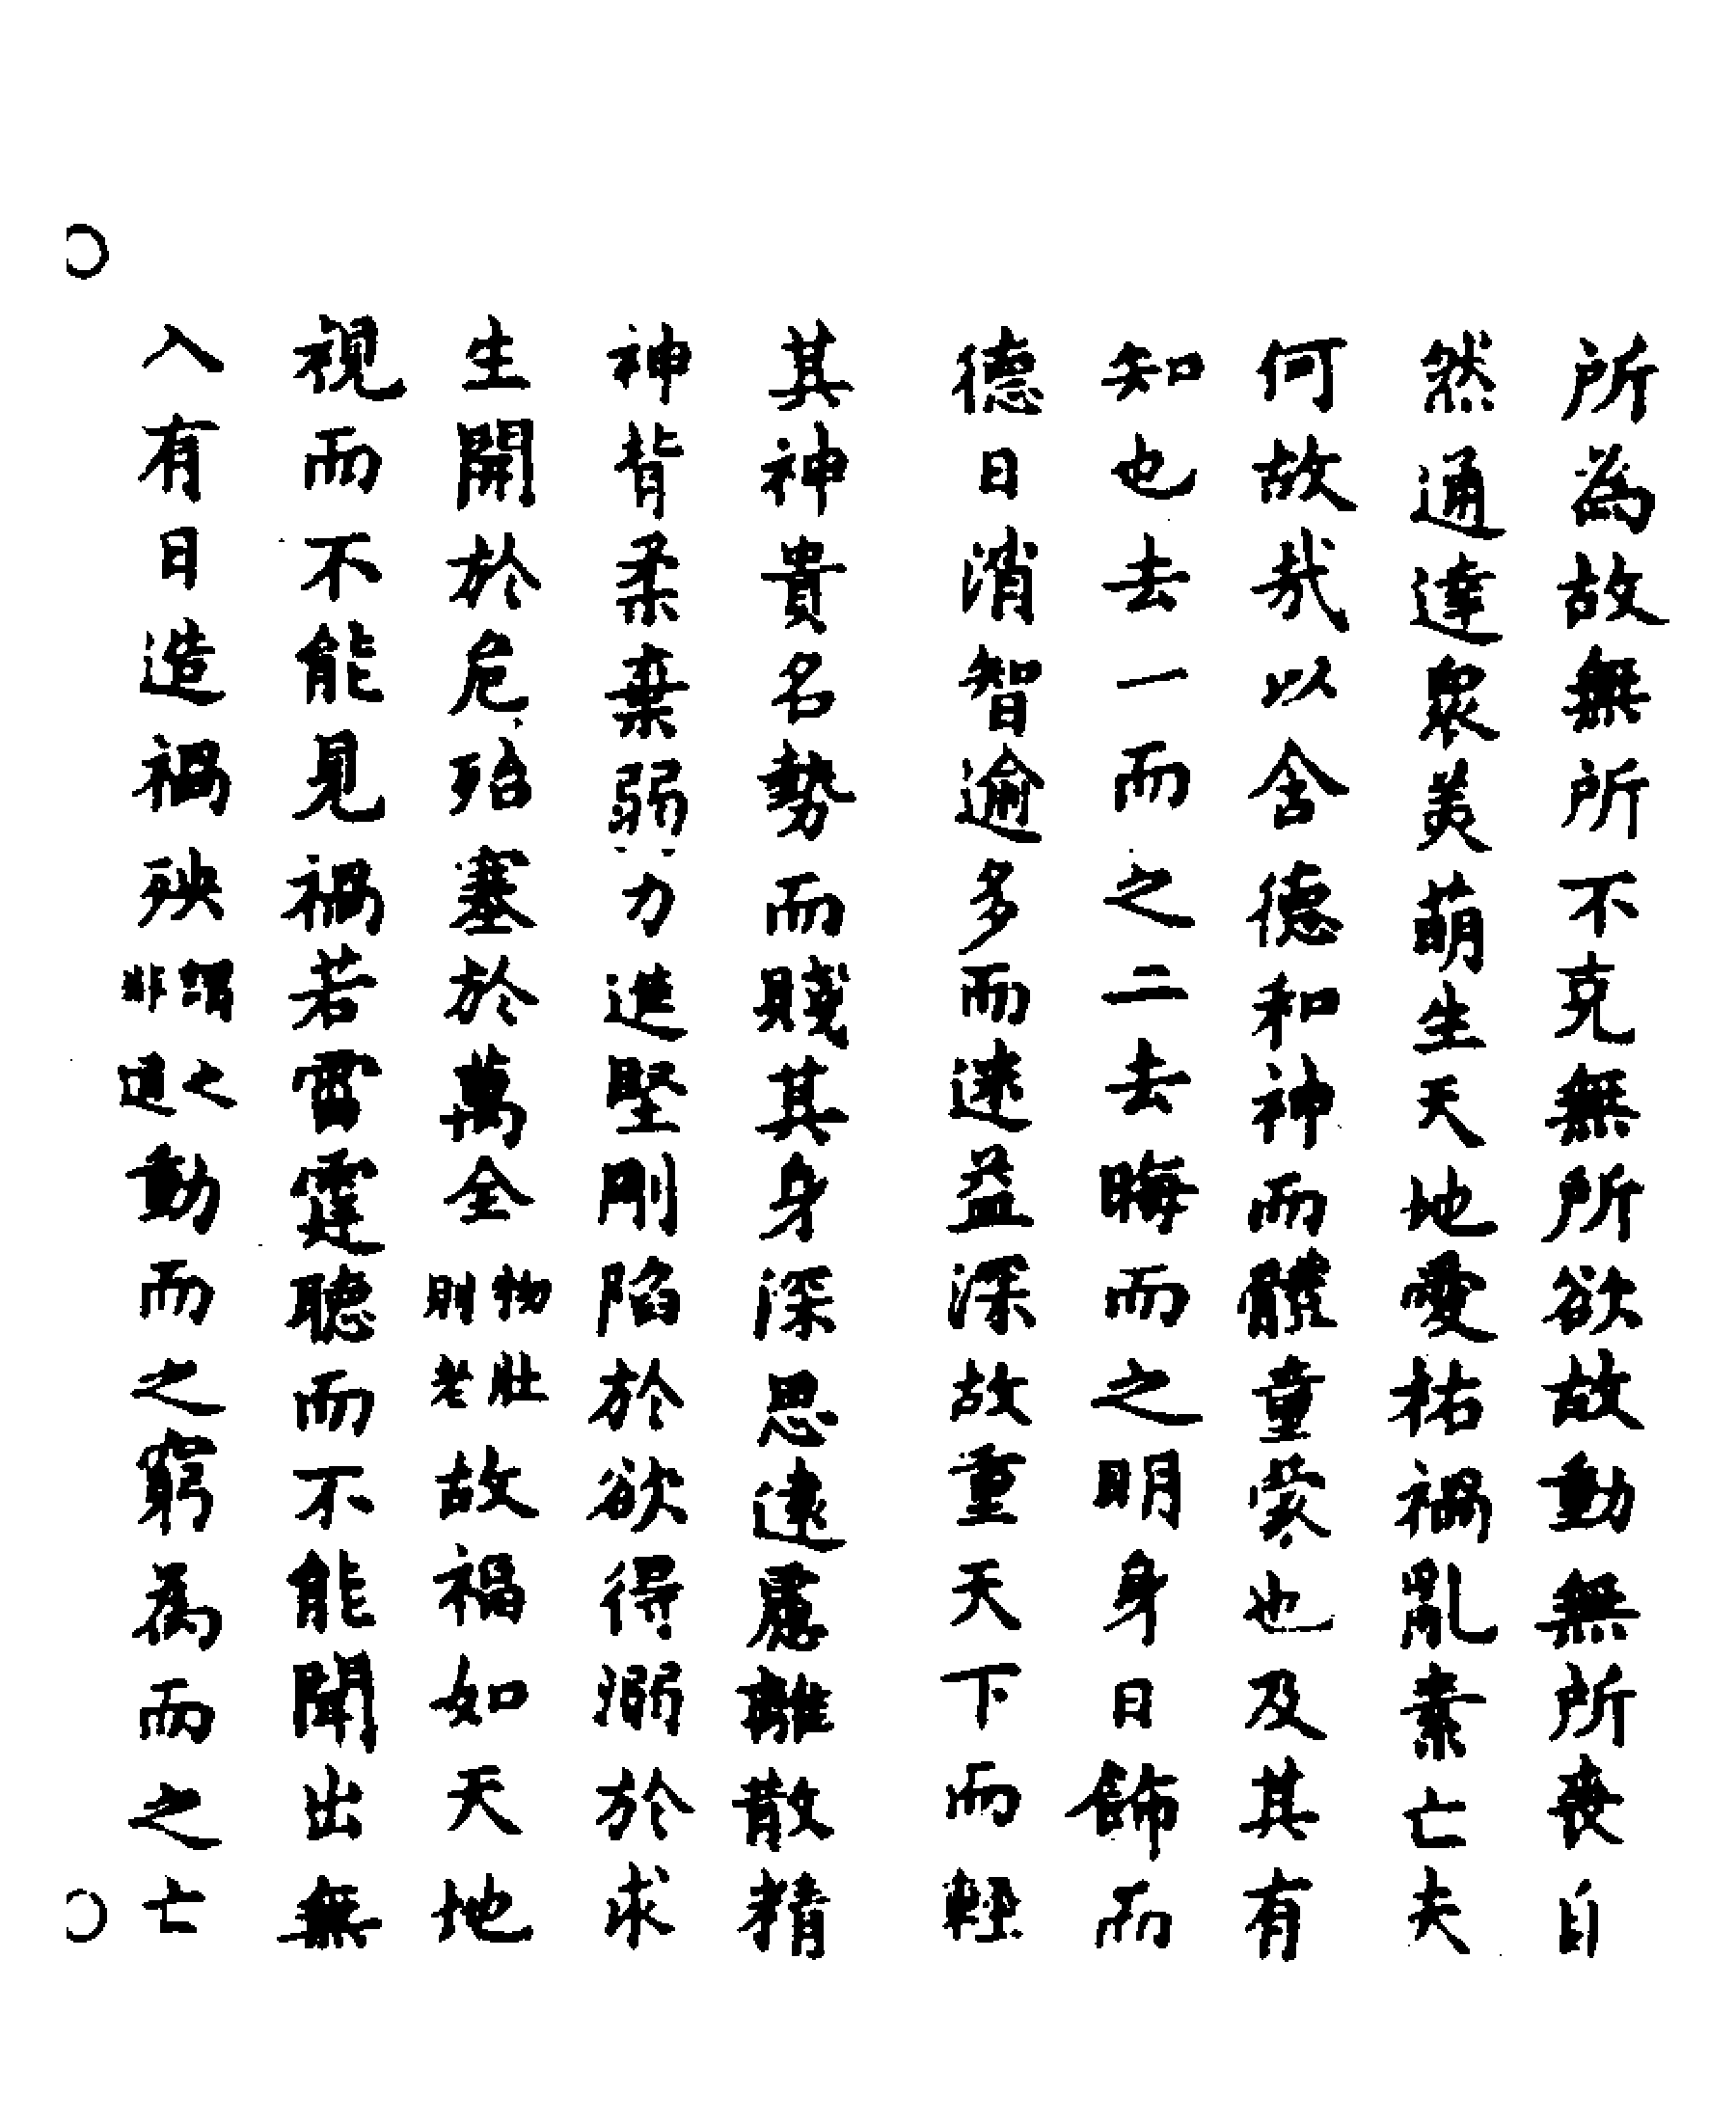 所為故無所不克無所欲故動無所喪自
然通達衆美萌生天地愛祐禍亂素亡夫
何故哉以含德和神而體童蒙也及其有
知也去一而之二去晦而之明身日飾而
德日消智逾多而迷益深故重天下而輕
其神貴名勢而賤其身深思遠慮離散精
神背柔棄弱力進堅剛陷於欲得溺於求
生開於危殆塞於萬全物壯則老故福如天地
視而不能見禍若雷霆聽而不能聞出無
入有日造禍殃謂之非道動而之窮為而之亡